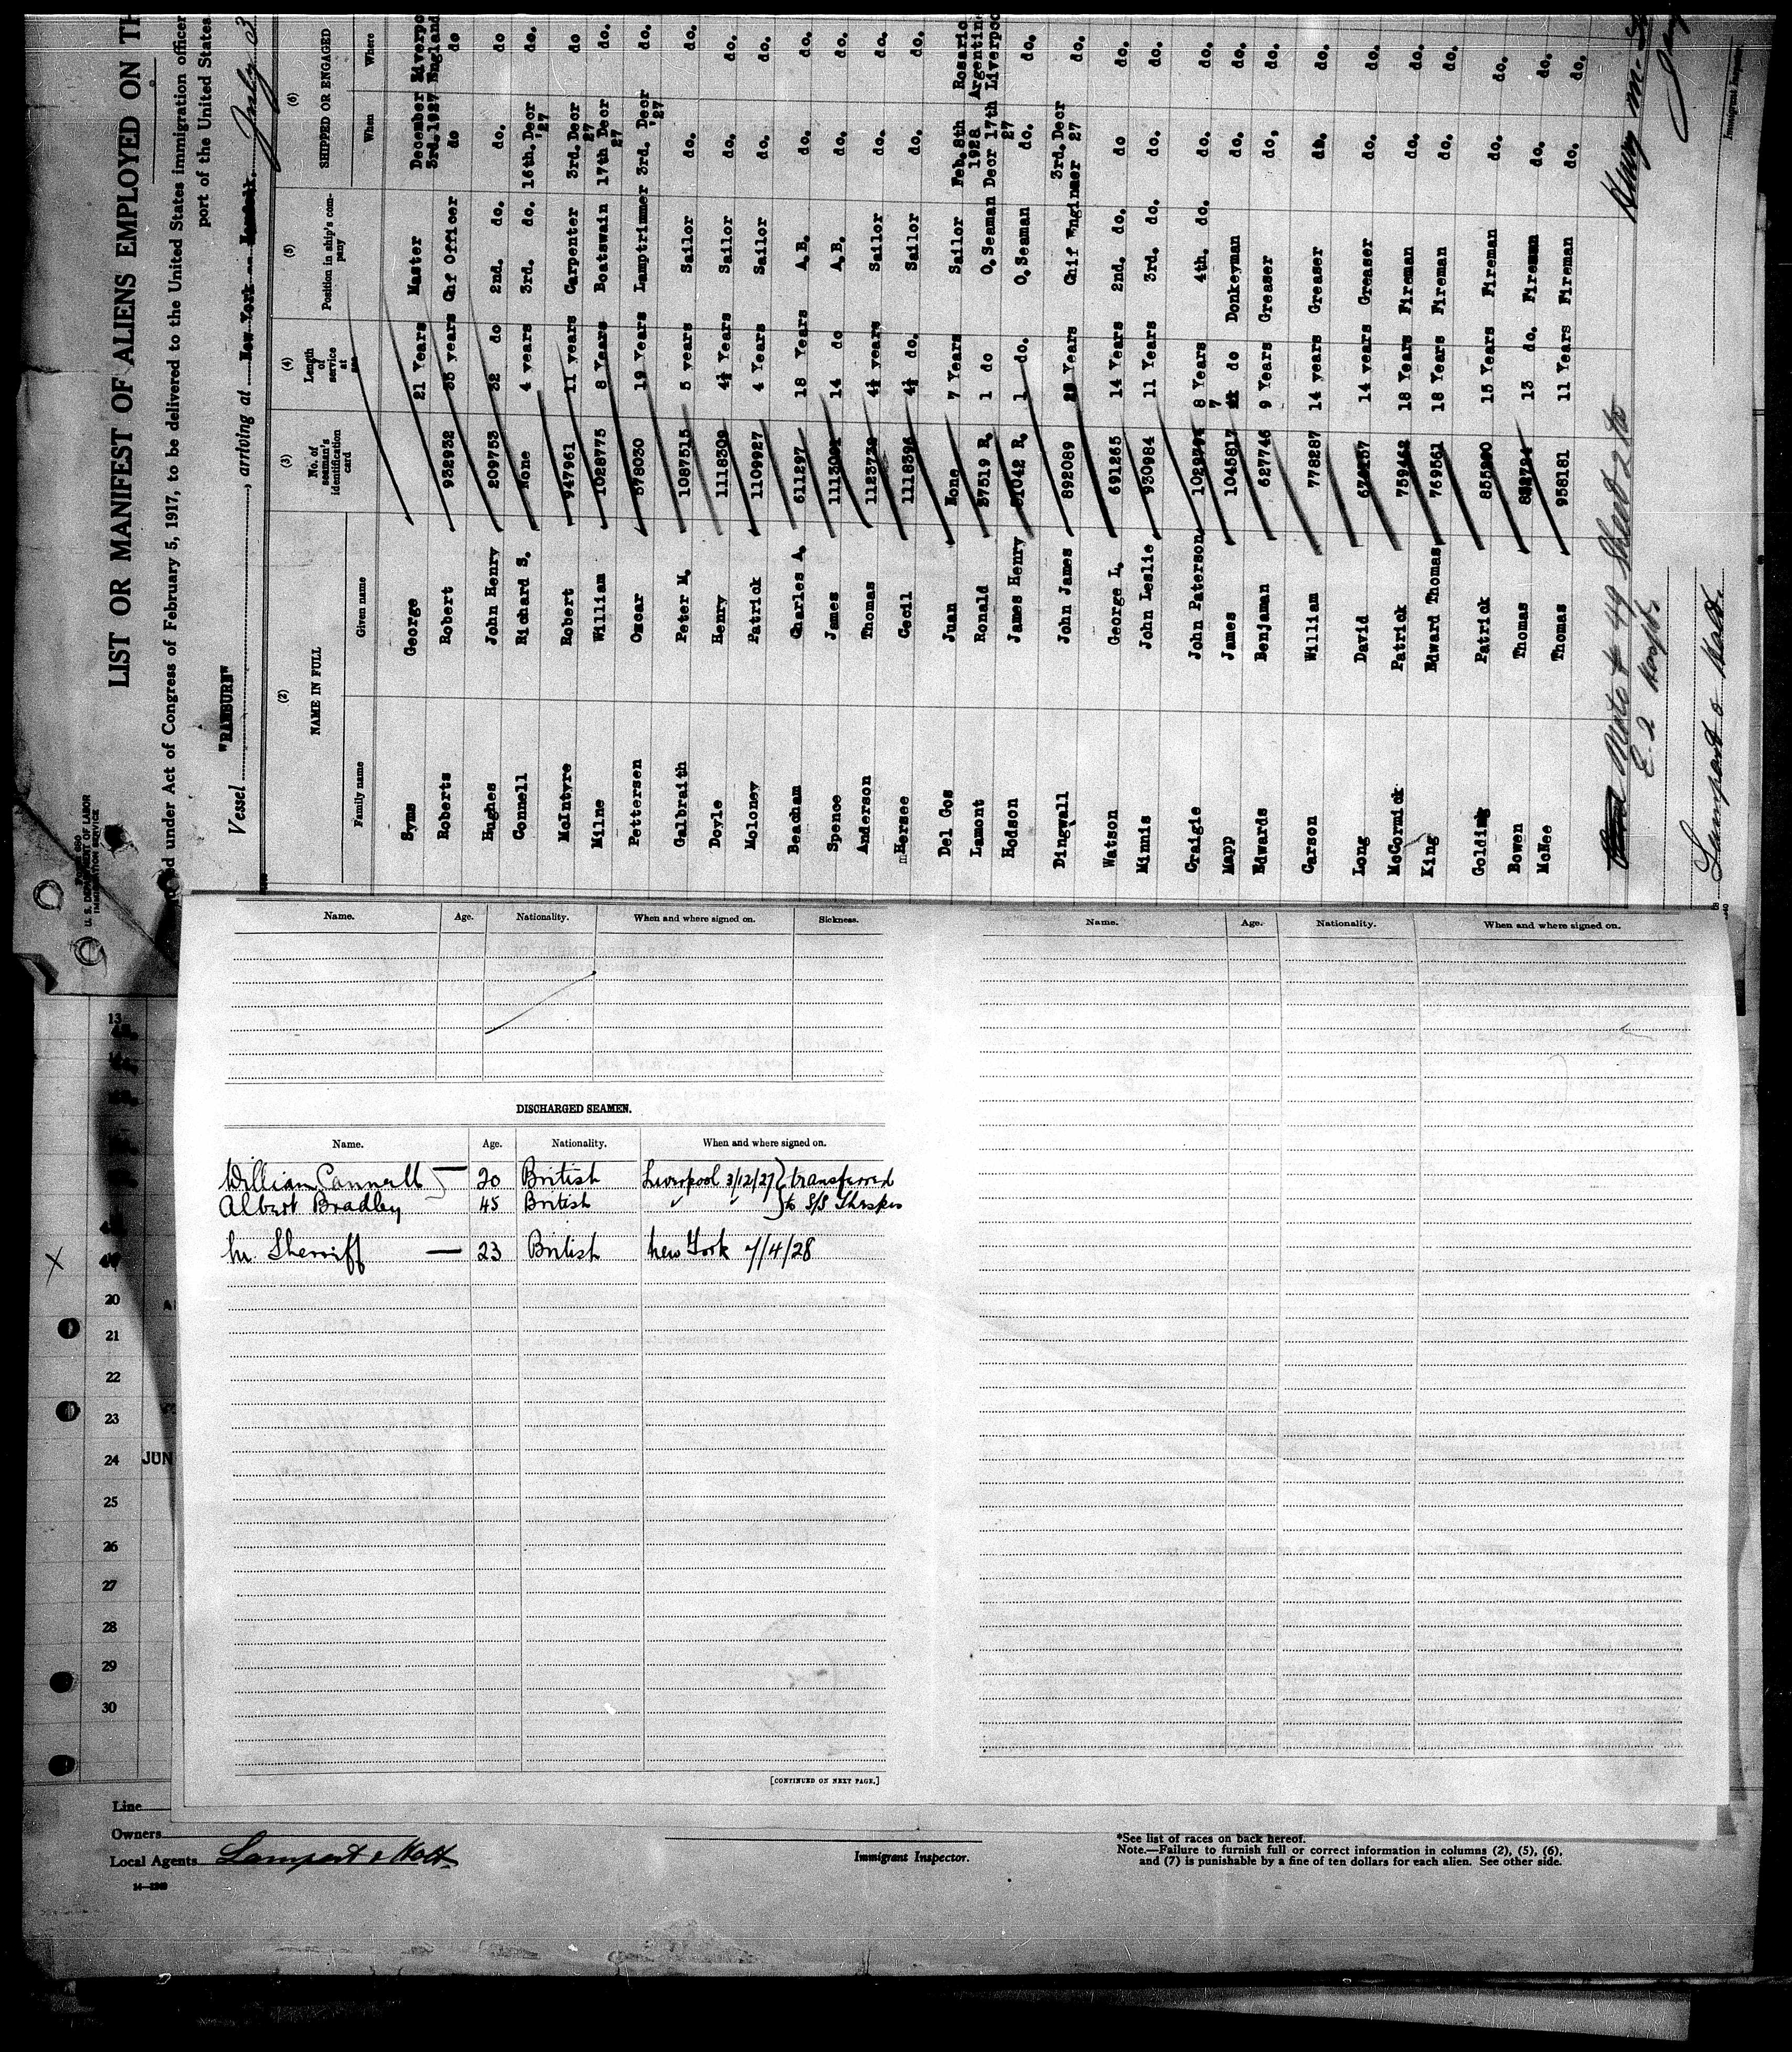 LIST OR MANIFEST OF ALIENS EMPLOYED ON TH
ed under Act of Congress of February 5, 1917, to be delivered to the United States immigration officer
port of the United States
FORM 680
U. S. DEPARTMENT OF LABOR
IMMIGRATION SERVICE
Vessel "RANBURN", arriving at New York
(2) (3) (4) (5) (6)
NAME IN FULL No. of seaman's identification card Length of service at sea Position in ship's company SHIPPED OR ENGAGED
Family name Given name When Where
Syms George 21 Years Master December 3rd.1927 Liverpo England
Roberts Robert 932932 35 years Chf Officer do do
Hughes John Henry 209753 32 do 2nd. do. do. do
Connell Richard S. None 4 years 3rd. do. 16th. Decr '27 do.
McIntyre Robert 947961 11 years Carpenter 3rd. Decr 27 do
Milne William 1028775 8 Years Boatswain 17th Decr 27 do.
Pettersen Oscar 578030 19 Years Lamptrimmer 3rd. Decr '27 do.
Galbraith Peter M. 1087515 5 years Sailor do. do.
Doyle Henry 1118309 4½ Years Sailor do. do.
Moloney Patrick 1109927 4 Years Sailor do. do.
Beacham Charles A. 611297 18 Years A.B. do. do.
Spence James 14 do A.B. do. do.
Anderson Thomas 1123738 4½ years Sailor do. do.
Hersee Cecil 1118396 4½ do. Sailor do. do.
Del Gos Juan None 7 Years Sailor Feb. 8th 1928 Rosario Argentine
Lamont Ronald 37519 R. 1 do O. Seaman Decr 17th 27 Liverpool
Hodson James Henry 31042 R. 1 do. O. Seaman do. do.
Dingwall John James 892089 Years Chif Enginaer 3rd. Decr 27 do.
Watson George L. 691265 14 Years 2nd. do. do do.
Minnis John Leslie 930984 11 Years 3rd. do. do. do.
Craigie John Paterson 8 Years 4th. do. do. do.
Mapp James 1045817 7 do Donkeyman do. do.
Edwards Benjaman 627746 9 Years Greaser do, do.
Carson William 778287 14 years Greaser do. do.
Long David 14 years Greaser do. do.
McCormick Patrick 759462 18 Years Fireman do. do.
King Edward Thomas 769561 18 Years Fireman do. do.
Golding Patrick 15 Years Fireman do. do.
Bowen Thomas 13 do. Fireman do. do.
McKee Thomas 958181 11 Years Fireman do. do.
Lamport & Holt.
Immigrant Inspector.
Name. Age. Nationality. When and where signed on. Sickness.
DISCHARGED SEAMEN.
Name. Age. Nationality. When and where signed on.
William Connell 20 British Liverpool 3/12/27 } transferred
Albert Bradley 45 British " " } to S/S Thespis
M. Sherriff 23 British New York 7/4/28
[CONTINUED ON NEXT PAGE.]
Name. Age. Nationality. When and where signed on.
13
20
21
22
23
24 JUN
25
26
27
28
29
30
Line
Owners
Local Agents Lamport & Holt
Immigrant Inspector.
*See list of races on back hereof.
Note.—Failure to furnish full or correct information in columns (2), (5), (6),
and (7) is punishable by a fine of ten dollars for each alien. See other side.